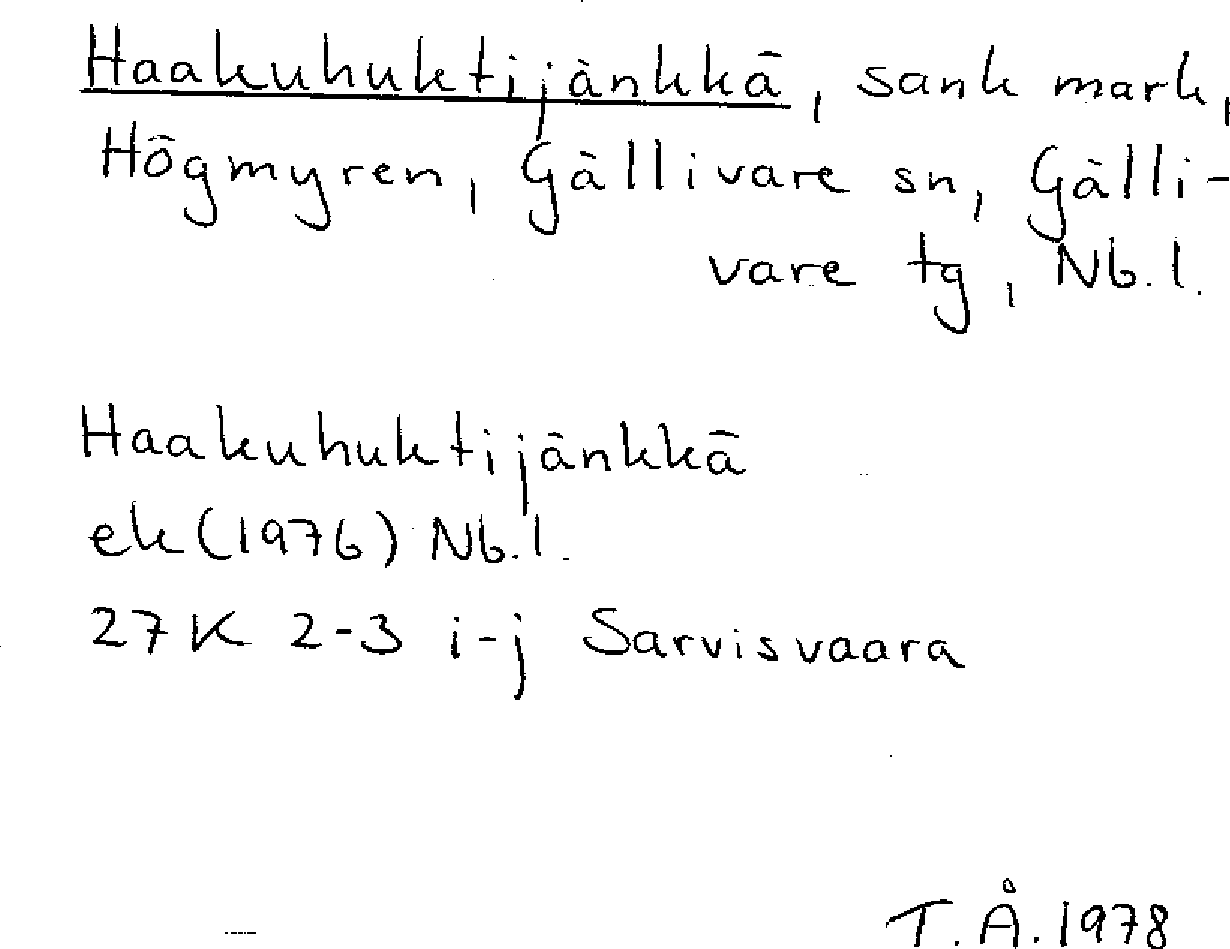 Haakuhuktijänkkä, sank mark,
Högmyren, Gällivare sn, Gälli-
vare tg, Nb.l.
Haakuhuktijänkkä
ek (1976) Nb.l.
27K 2-3 i-j Sarvisvaara
T.Å. 1978